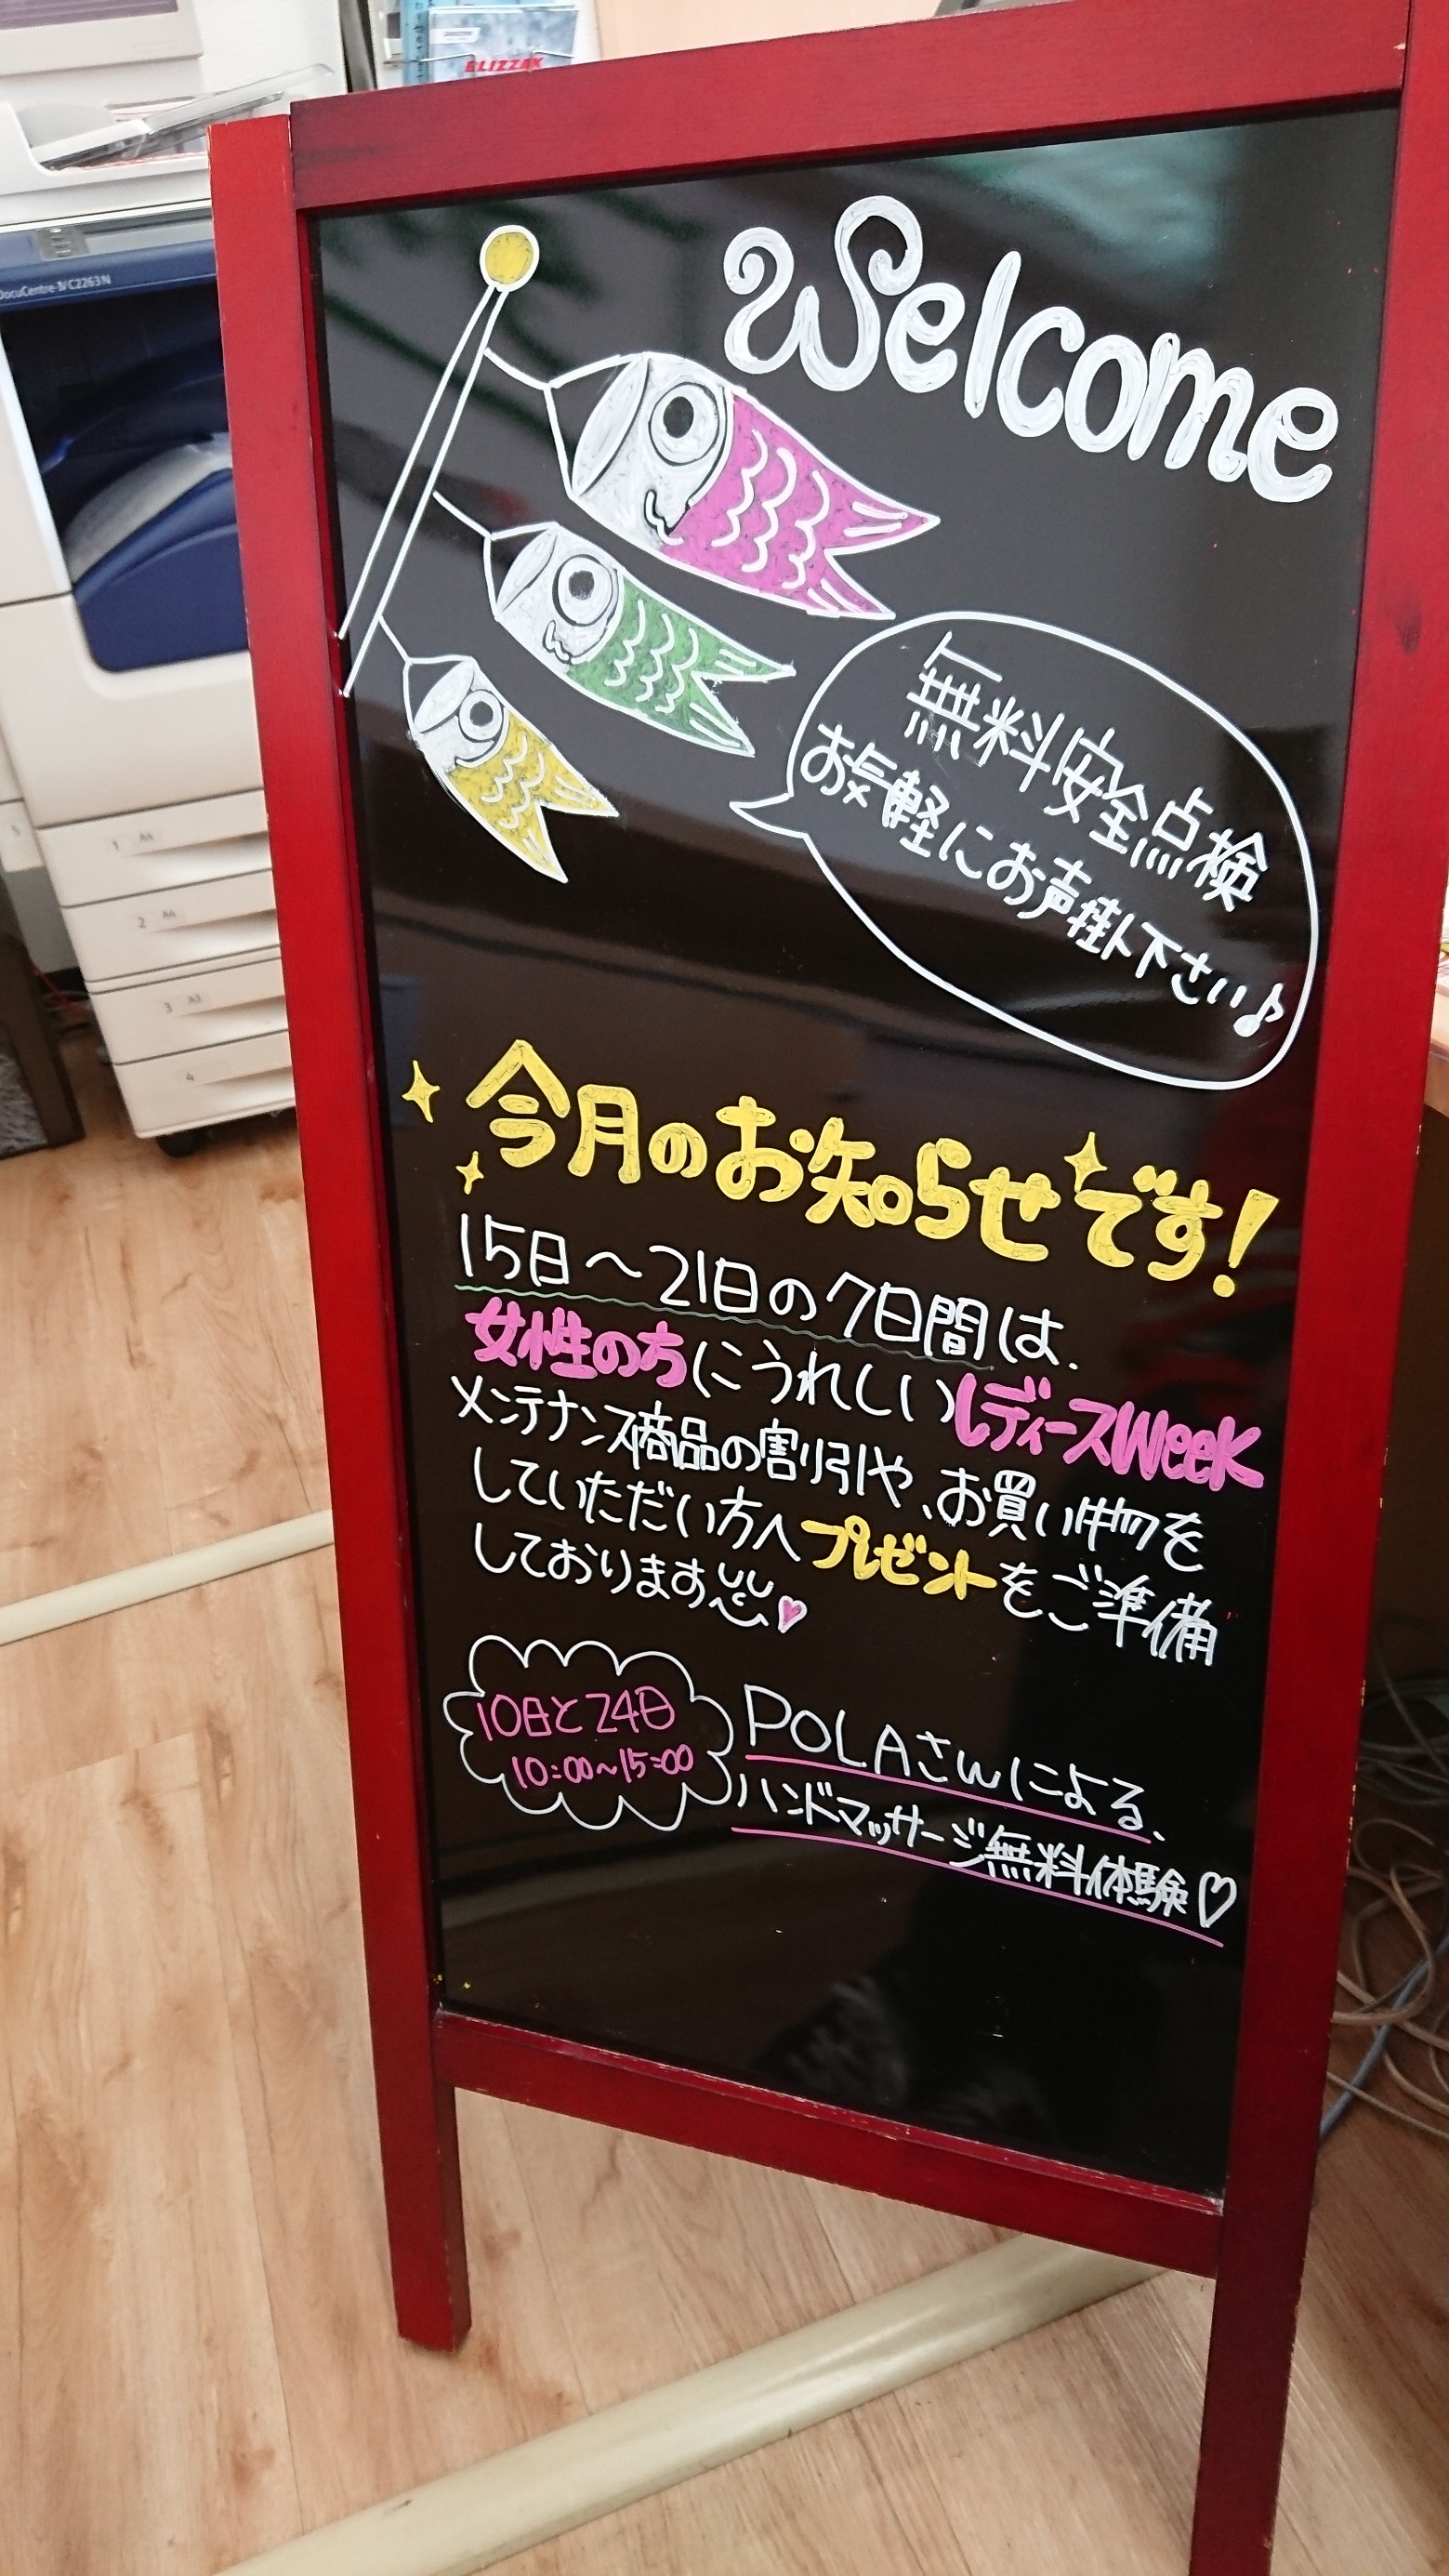 BLIZZAK
DocuCentre-IV C2263N
1 A4
2 A4
3 A3
4
Welcome
無料安全点検
お気軽にお声掛下さい♪
今月のお知らせです!
15日〜21日の7日間は、
女性の方にうれしいレディースWeek
メンテナンス商品の割引や、お買い物を
していただい方へプレゼントをご準備
しております
10日と24日
10:00〜15:00
POLAさんによる、
ハンドマッサージ無料体験♡